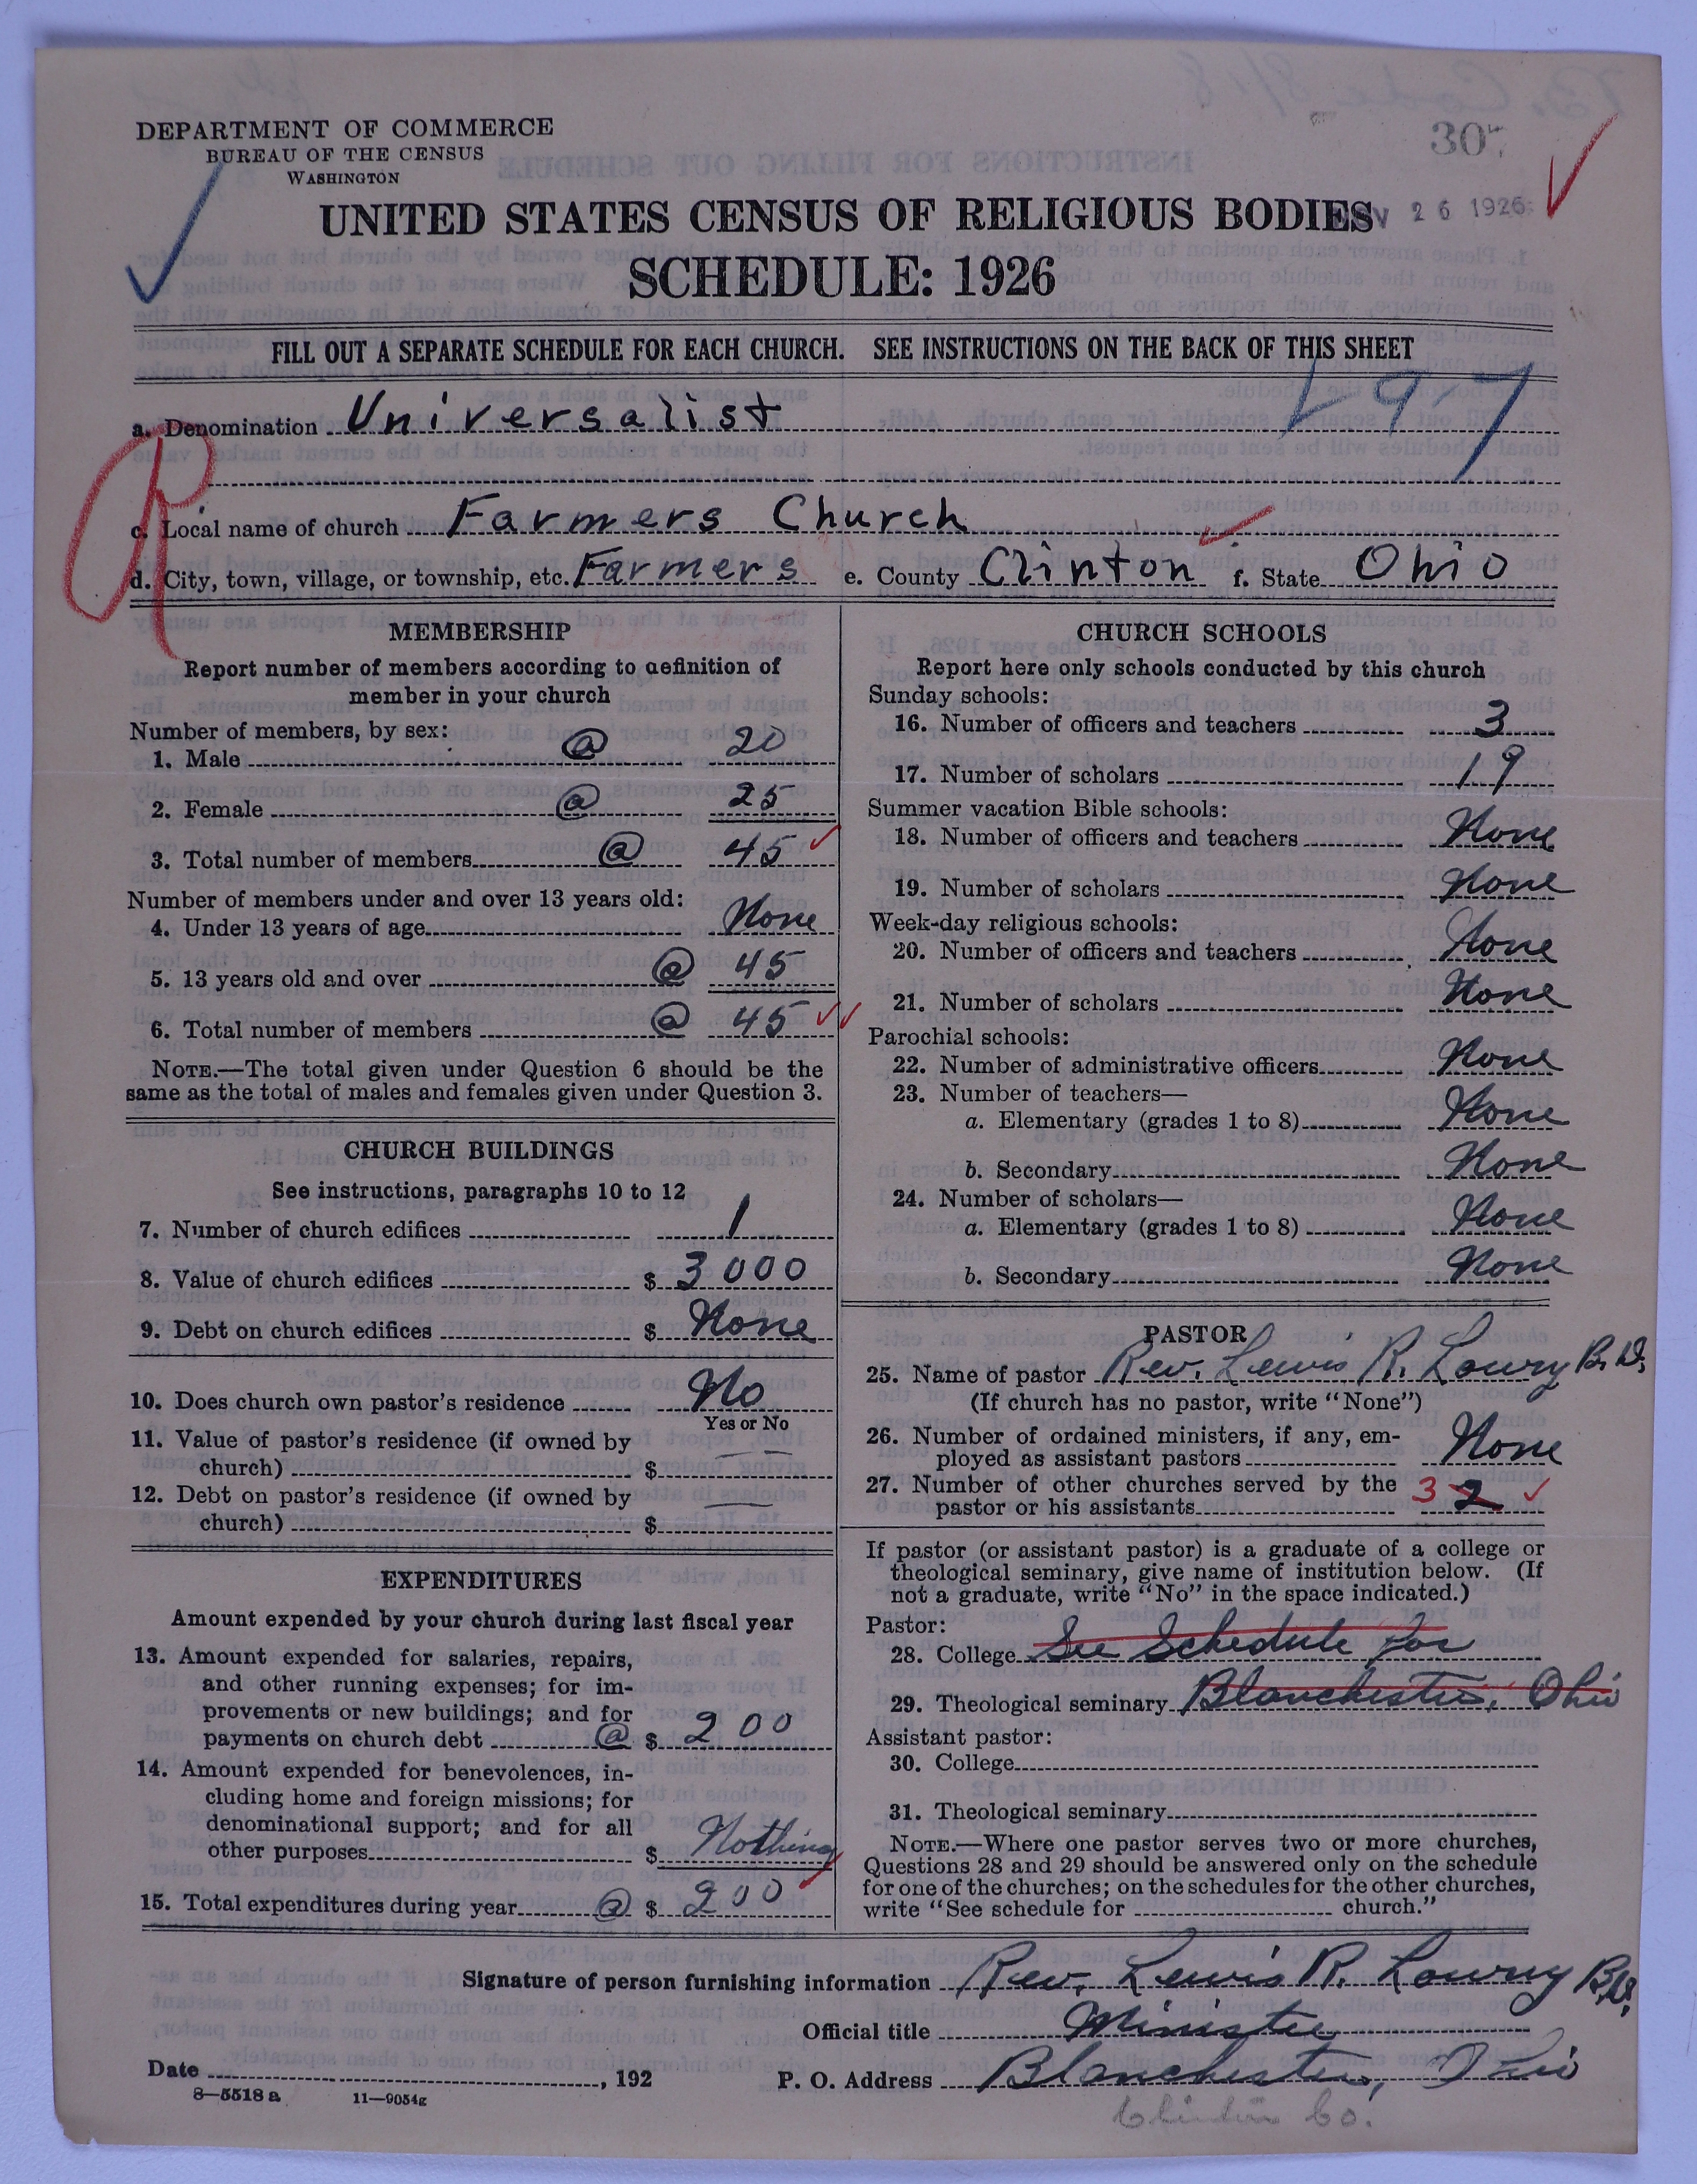 DEPARTMENT OF COMMERCE
BUREAU OF THE CENSUS
WASHINGTON
30
26 1926
UNITED STATES CENSUS OF RELIGIOUS BODIES
SCHEDULE: 1926
FILL OUT A SEPARATE SCHEDULE FOR EACH CHURCH. SEE INSTRUCTIONS ON THE BACK OF THIS SHEET
a. Denomination Universalist
R
c. Local name of church Farmers Church
d. City, town, village, or township, etc. Farmers e. County Clinton f. State Ohio
MEMBERSHIP
Report number of members according to definition of
member in your church
Number of members, by sex:
1. Male @ 20
2. Female @ 25
3. Total number of members @ 45
Number of members under and over 13 years old:
4. Under 13 years of age None
5. 13 years old and over @ 45
6. Total number of members @ 45
NOTE.—The total given under Question 6 should be the
same as the total of males and females given under Question 3.
CHURCH BUILDINGS
See instructions, paragraphs 10 to 12
7. Number of church edifices 1
8. Value of church edifices $ 3000
9. Debt on church edifices $ None
10. Does church own pastor's residence No
Yes or No
11. Value of pastor's residence (if owned by
church) $ —
12. Debt on pastor's residence (if owned by
church) $ —
EXPENDITURES
Amount expended by your church during last fiscal year
13. Amount expended for salaries, repairs,
and other running expenses; for im-
provements or new buildings; and for
payments on church debt @ $ 200
14. Amount expended for benevolences, in-
cluding home and foreign missions; for
denominational support; and for all
other purposes $ Nothing
15. Total expenditures during year @ $ 200
CHURCH SCHOOLS
Report here only schools conducted by this church
Sunday schools:
16. Number of officers and teachers 3
17. Number of scholars 19
Summer vacation Bible schools:
18. Number of officers and teachers None
19. Number of scholars None
Week-day religious schools:
20. Number of officers and teachers None
21. Number of scholars None
Parochial schools:
22. Number of administrative officers None
23. Number of teachers—
a. Elementary (grades 1 to 8) None
b. Secondary None
24. Number of scholars—
a. Elementary (grades 1 to 8) None
b. Secondary None
PASTOR
25. Name of pastor Rev. Lewis R. Lowry B.D.
(If church has no pastor, write "None")
26. Number of ordained ministers, if any, em-
ployed as assistant pastors None
27. Number of other churches served by the
pastor or his assistants 3 2
If pastor (or assistant pastor) is a graduate of a college or
theological seminary, give name of institution below. (If
not a graduate, write "No" in the space indicated.)
Pastor:
28. College See Schedule for
29. Theological seminary Blanchester, Ohio
Assistant pastor:
30. College
31. Theological seminary
NOTE.—Where one pastor serves two or more churches,
Questions 28 and 29 should be answered only on the schedule
for one of the churches; on the schedules for the other churches,
write "See schedule for church."
Signature of person furnishing information Rev. Lewis R. Lowry B.D.
Official title Minister
Date , 192 P. O. Address Blanchester, Ohio
8—5518a 11—9054g
Clinton Co.